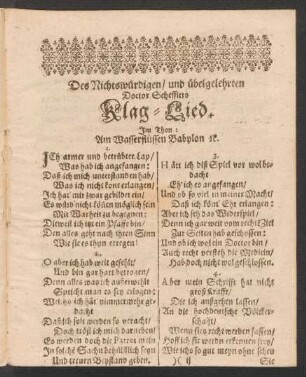 Des Nichtswürdigen/ und übelgelehrten
Doctor Schefflers
Klag-Lied.
Im Thon:
Am Wasserflüssen Babylon ꝛc.
1.
ICh armer und betrübter Lap/
Was hab ich angefangen:
Daß ich mich unterstanden hab/
Was ich nicht kont erlangen/
Ich hat' mir zwar gebildet ein/
Es würd nicht können möglich sein
Mit Warheit zu begegnen:
Dieweil ich itzt ein Pfaff bin/
Dem alles geht nach ihren Sinn
Wie sie es thun erregen!
2.
O aber ich hab weit gefehlt/
Und bin gar hart betrogen/
Denn alles was ich außerwählt
Spricht man es sey erlogen;
Welches ich hät nimmermehr gedacht
Daß ich solt werden so veracht/
Doch tröst ich mich darneben/
Es werden doch die Patres mein
In solche Sach behülfflich seyn
Und treuen Beystand geben.
3.
Hätt ich diß Spiel vor wol bedacht
Eh' ich es angefangen/
Und ob es viel in meiner Macht/
Daß ich kön't Ehr erlangen:
Aber ich seh das Wiederspiel/
Denn ich gar weit vom recht'n Ziel
Zur Seiten hab geschossen:
Und ob ich wol ein Doctor bin/
Auch recht versteh die Medicin/
Hab doch nicht wol geschlossen.
4.
Aber mein Schrifft hat nicht
groß Kraffte/
Die ich außgehen lassen/
An die hochdeutsche Völckerschafft/
Wenn sies recht werden fassen/
Hoff ich sie werden erkennen frey/
Wie ich so gut meyn ohne scheu
)( ij Sie